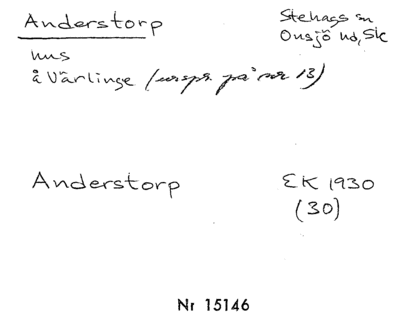 Anderstorp
Stehags sn
Onsjö hd, Sk
hus
å Värlinge (urspr. på nr 13)
Anderstorp
EK 1930
(30)
Nr 15146